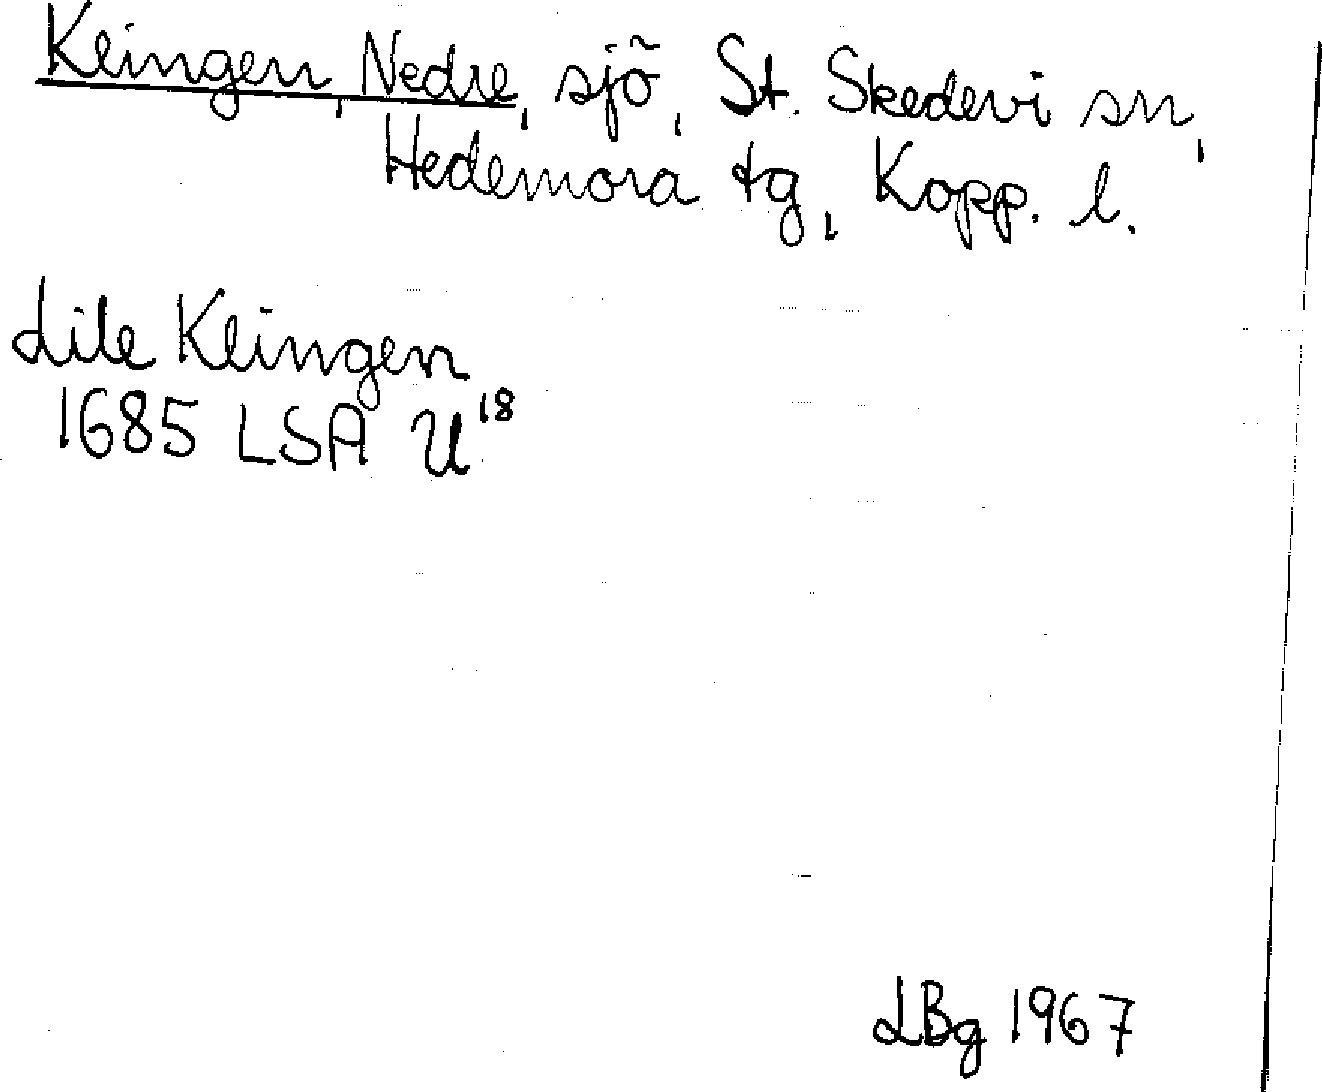 Klingen, Nedre, sjö, St. Skedevi sn,
Hedemora tg, Kopp. l.
Lile Klingen
1685 LSA U18
LBg 1967